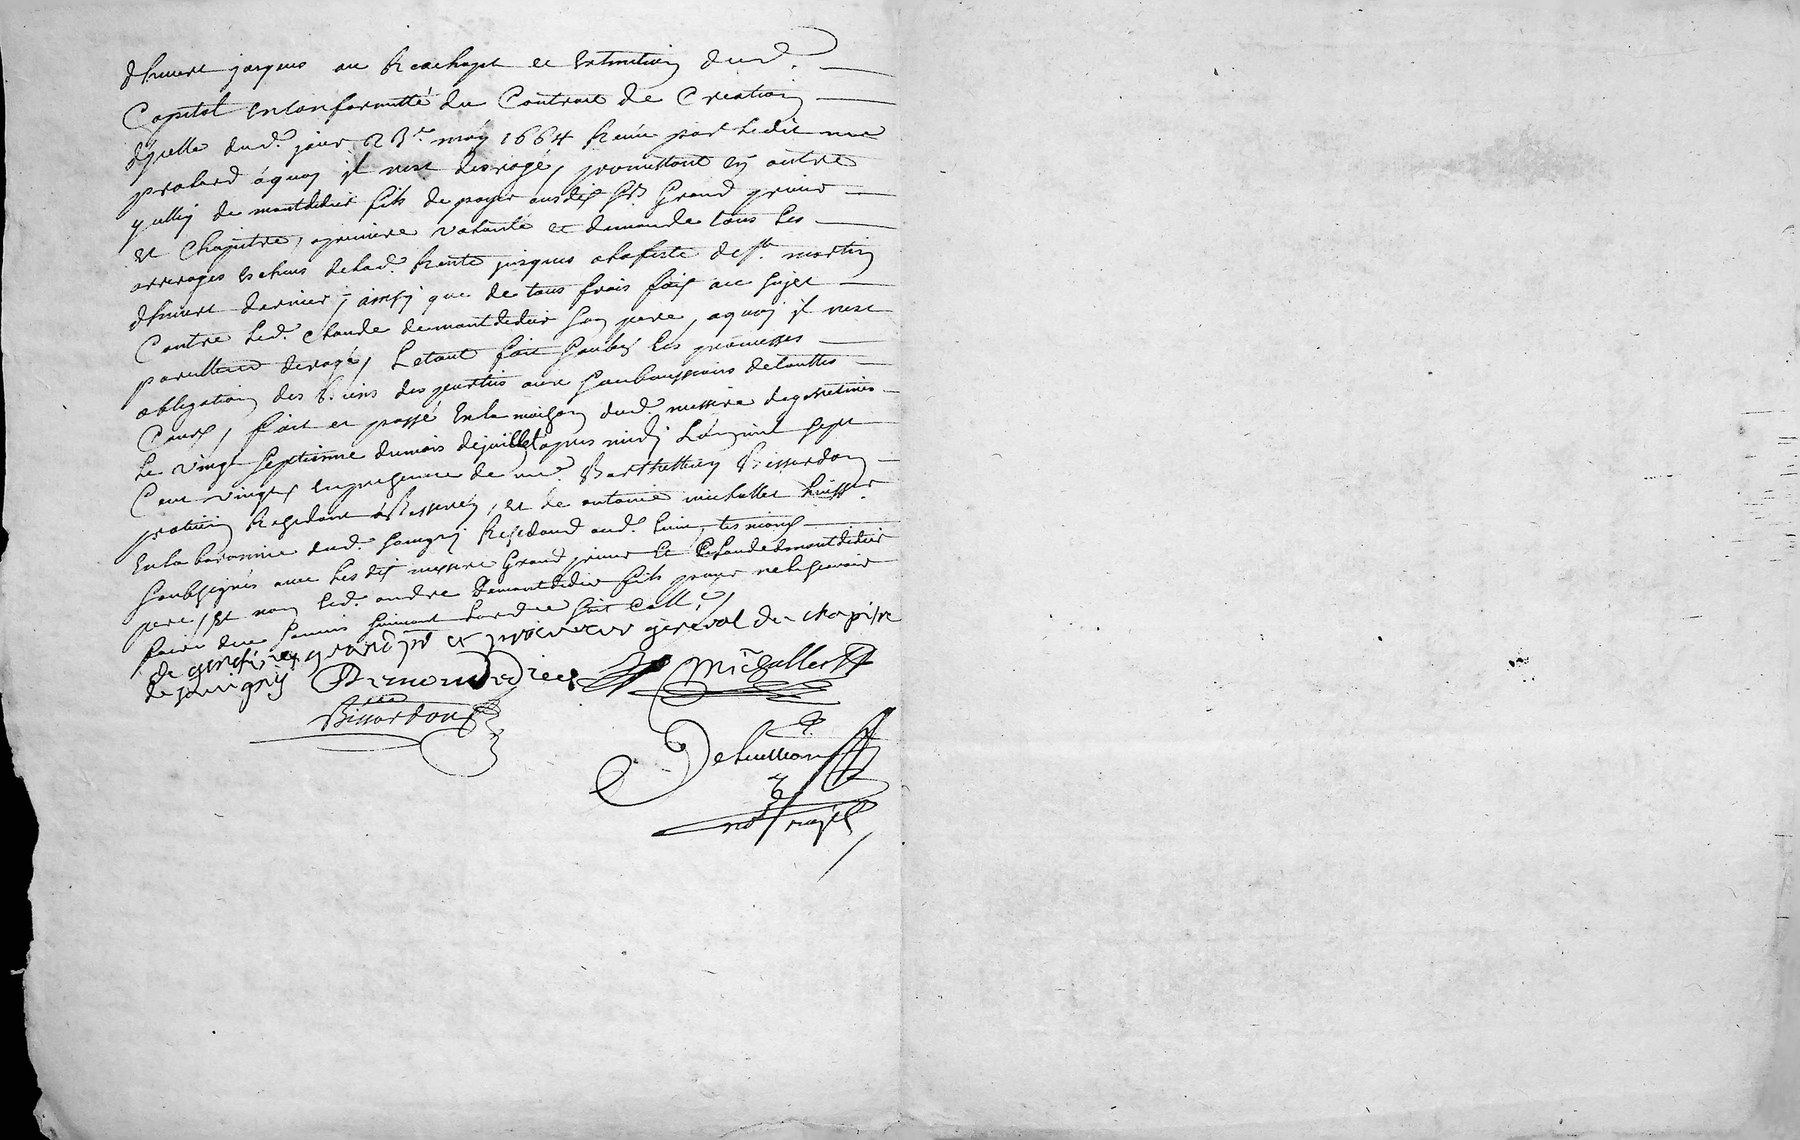 d'hivert jusques au Reachapt et extinction dud.
Capital en conformitté du Contract de Creation
d'jcelle dud. jour 23e. may 1664 Receu par ledit me
pralard a quoy jl nest desrogé, promettant en outre
de montdidier fils de payer ausdit Srs Grand prieur
et Chapitre, a premiere volonté et demande tous les
arrerages escheus de lad. Rente jusques a la feste de st. martin
d'hivert dernier, ainsy que de tous frais fait au sujet
Contre led. claude de montdidier son pere, a quoy jl nest
pareillement derogé, Letout fait soubs les promesses
obligation des biens des parties aux soubmissions de touttes
Cours, fait et passé En la maison dud. messire de gestines
Le vingt septieme du mois de juillet apres midy L'an mil sept
Cent vingt en presence de me. Barthellemy Bissardon
praticien Residant a Bessenay, et de antoine michallet huissier
En la baronnie dud. Savigny Residand aud. lieu, tesmoins
soubsignés avec lesdit messire Grand prieur et Claude de montdidier
pere, et non led. andré de montdidier fils pour ne le scavoir
faire de ce enquis suivant lordre soit Coll.é
de gestines grand pr et procureur general du chapitre
de savigny Demondidier Michallet
Bissardon
Dehuillion
not royal